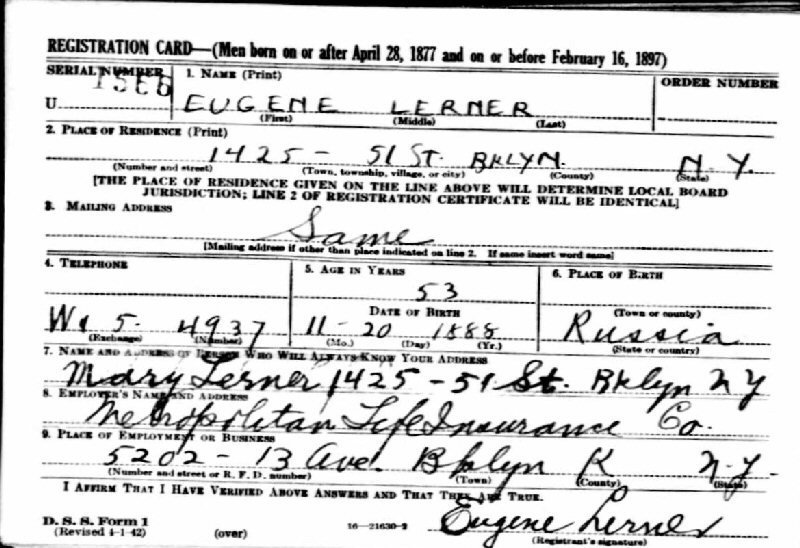 REGISTRATION CARD—(Men born on or after April 28, 1877 and on or before February 16, 1897)
SERIAL NUMBER 1. NAME (Print) ORDER NUMBER
U
EUGENE LERNER
(First) (Middle) (Last)
2. PLACE OF RESIDENCE (Print)
1425 - 51 ST. BKLYN. N.Y.
(Number and street) (Town, township, village, or city) (County) (State)
[THE PLACE OF RESIDENCE GIVEN ON THE LINE ABOVE WILL DETERMINE LOCAL BOARD
JURISDICTION; LINE 2 OF REGISTRATION CERTIFICATE WILL BE IDENTICAL]
3. MAILING ADDRESS
Same
[Mailing address if other than place indicated on line 2. If same insert word same]
4. TELEPHONE 5. AGE IN YEARS 6. PLACE OF BIRTH
53
DATE OF BIRTH (Town or county)
Wi 5- 4937 11-20 1888 Russia
(Exchange) (Number) (Mo.) (Day) (Yr.) (State or country)
7. NAME AND ADDRESS OF PERSON WHO WILL ALWAYS KNOW YOUR ADDRESS
Mary Lerner 1425-51 St. Bklyn NY
8. EMPLOYER'S NAME AND ADDRESS
Metropolitan Life Insurance Co.
9. PLACE OF EMPLOYMENT OR BUSINESS
5202-13 Ave. Bklyn K N.Y.
(Number and street or R. F. D. number) (Town) (County) (State)
I AFFIRM THAT I HAVE VERIFIED ABOVE ANSWERS AND THAT THEY ARE TRUE.
D. S. S. Form 1
(Revised 4-1-42) (over) 16—21630-2 Eugene Lerner
(Registrant's signature)